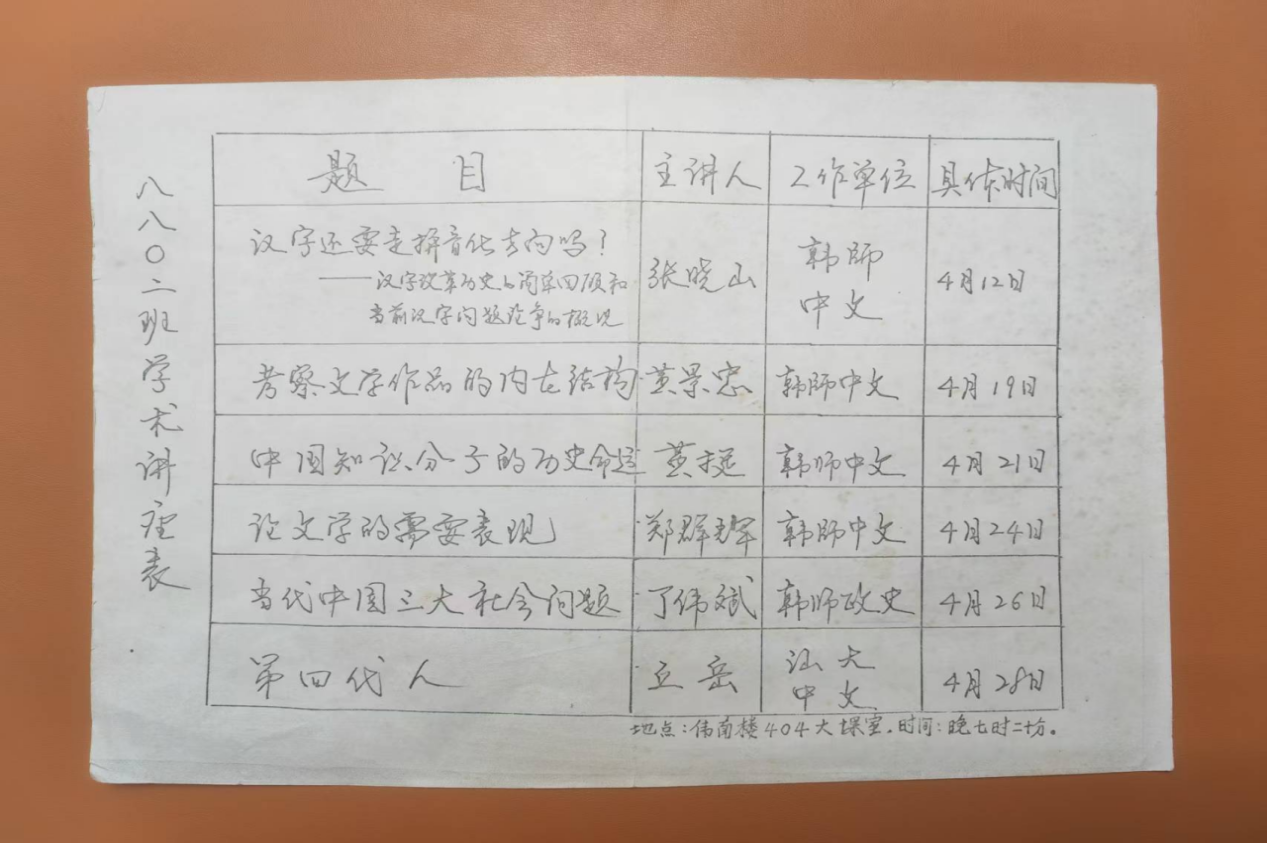 八八〇二班学术讲座表
题 目 主讲人 工作单位 具体时间
汉字还要走拼音化方向吗？
——汉字改革历史的简单回顾和
当前汉字问题论争的概况
张晓山 韩师
中文 4月12日
考察文学作品的内在结构 黄景忠 韩师中文 4月19日
中国知识分子的历史命运 黄挺 韩师中文 4月21日
论文学的需要表现 郑群辉 韩师中文 4月24日
当代中国三大社会问题 丁伟斌 韩师政史 4月26日
第四代人 丘岳 汕大
中文 4月28日
地点：伟南楼404大课室．时间：晚七时二十分。